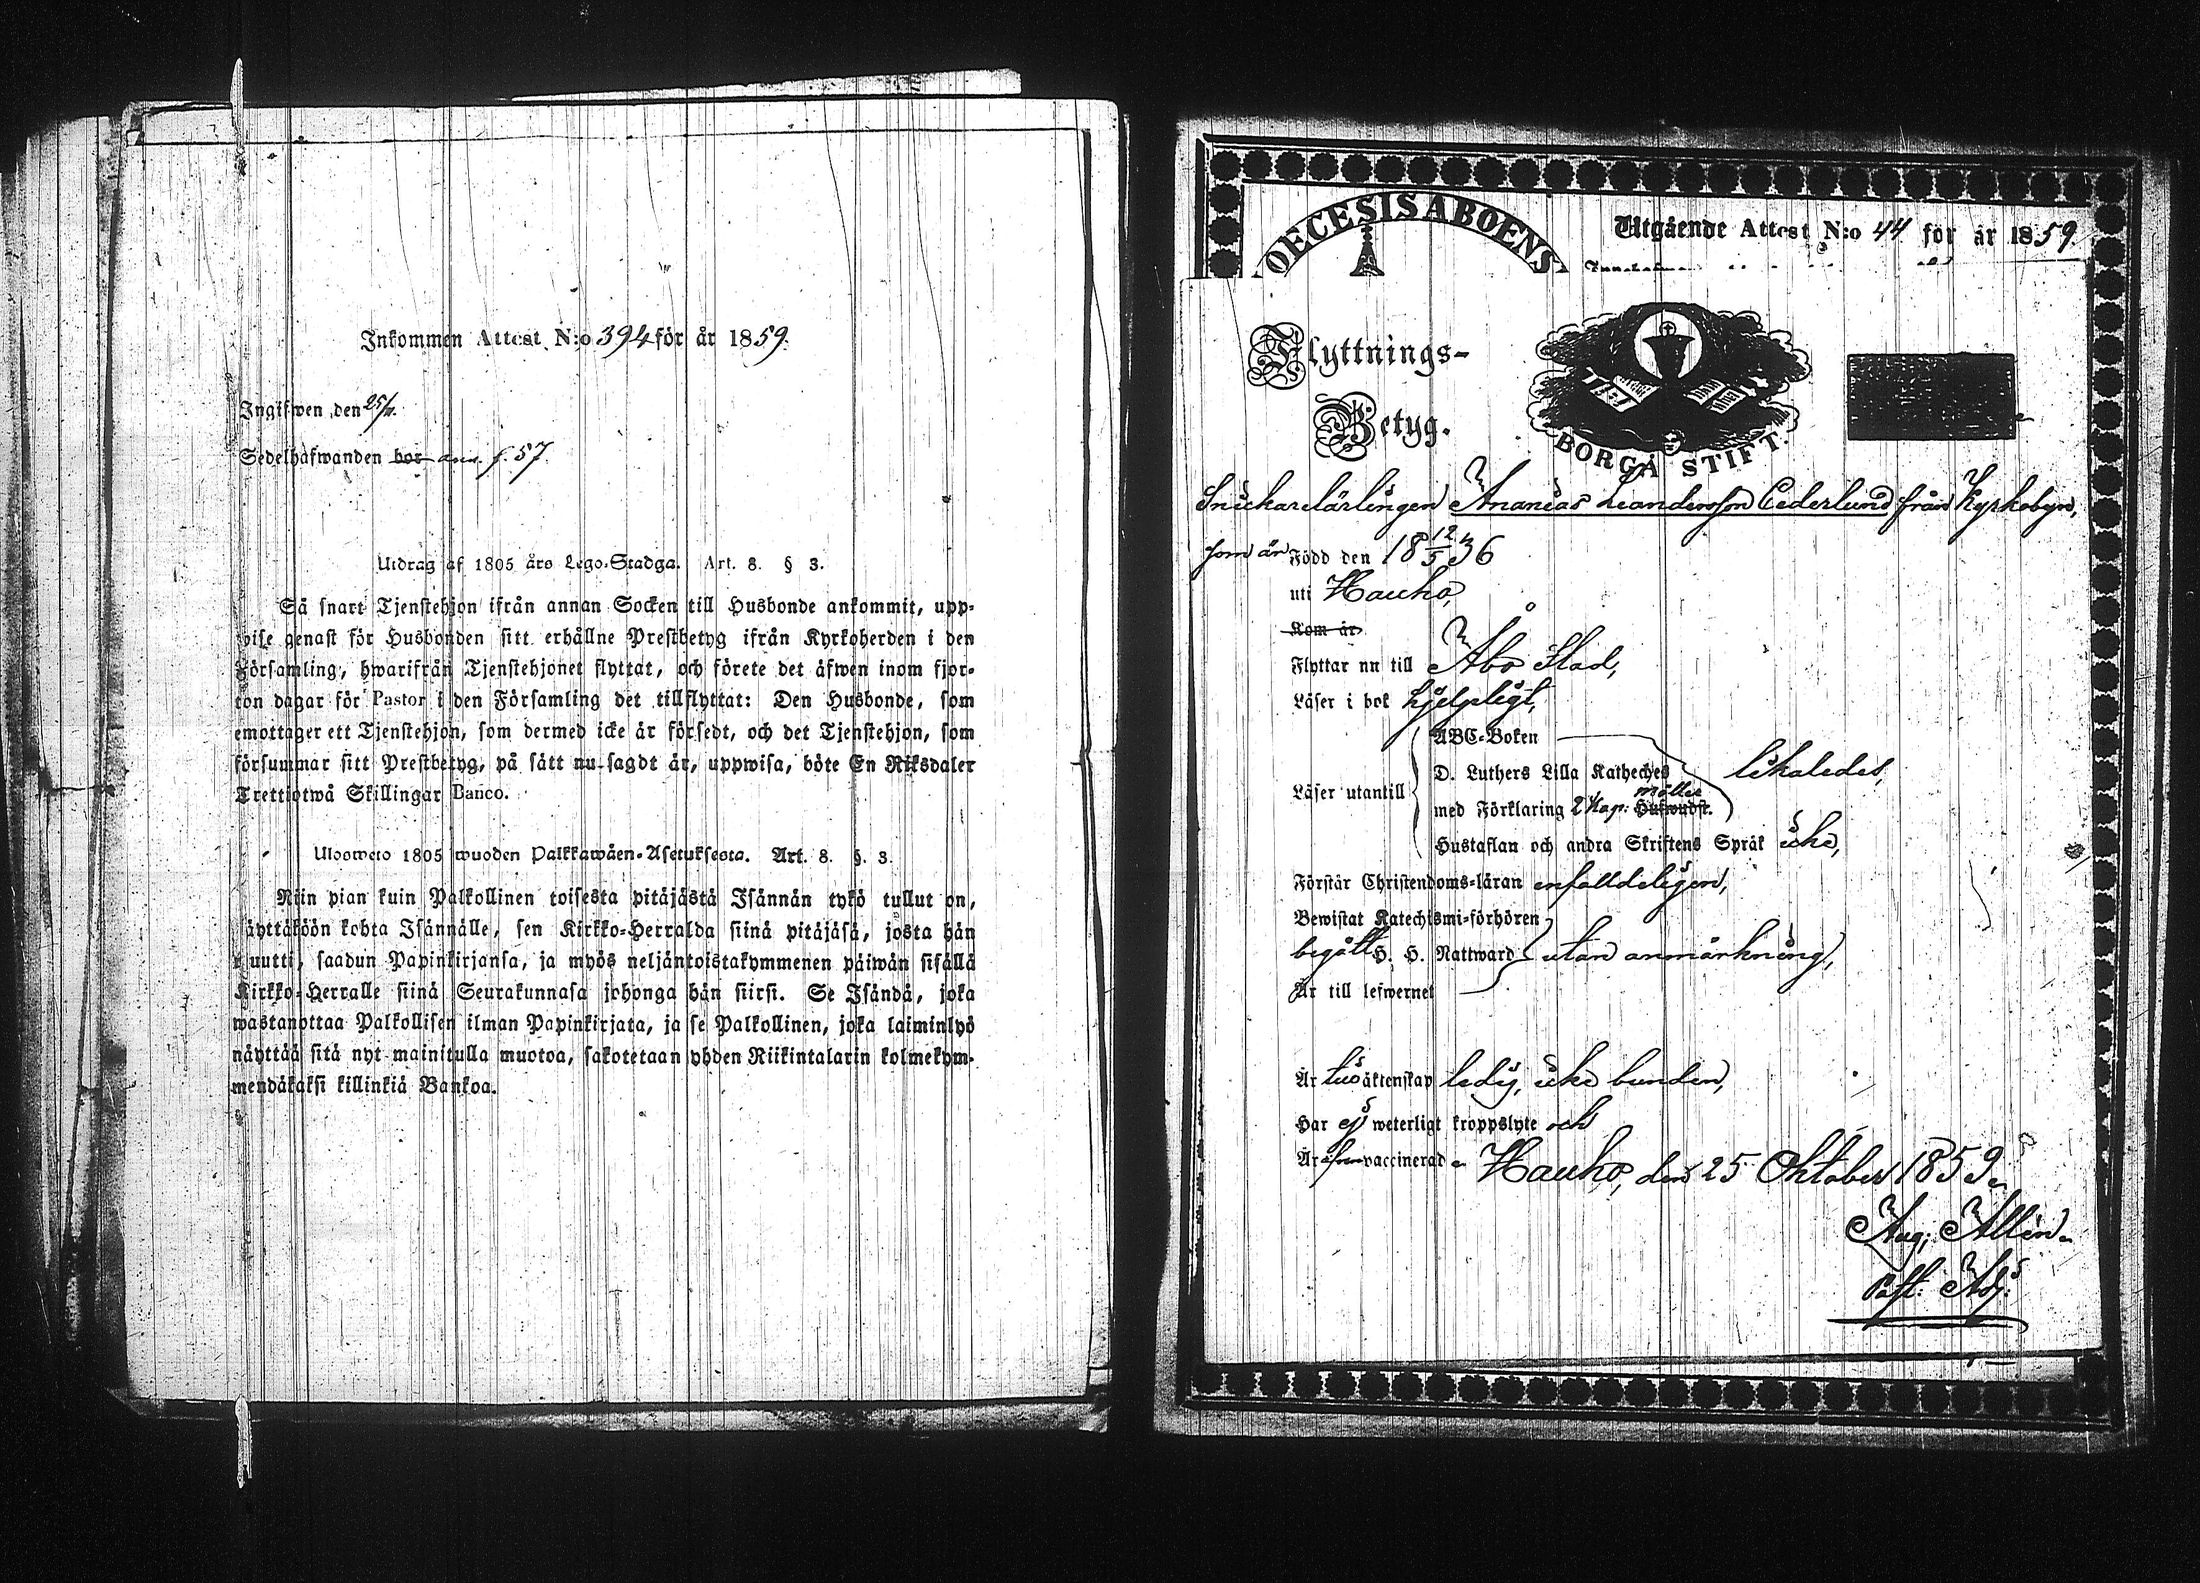 Inkommen Attest N:o 394 för år 1859.
Ingifwen den 25/11.
Sedelhafwanden bor ann. f. 57.
Utdrag af 1805 års Lego-Stadga. Art. 8. § 3.
Så snart Tjenstehjon ifrån annan Socken till Husbonde ankommit, upp-
wise genast för Husbonden sitt erhållne Prestbetyg ifrån Kyrkoherden i den
Församling, hwarifrån Tjenstehjonet flyttat, och förete det äfwen inom fjor-
ton dagar för Pastor i den Församling det tillflyttat: Den Husbonde, som
emottager ett Tjenstehjon, som dermed icke är försedt, och det Tjenstehjon, som
försummar sitt Prestbetyg, på sätt nu sagdt är, uppwisa, böte En Riksdaler
Trettiotwå Skillingar Banco.
Ulosweto 1805 wuoden Palkkawäen-Asetuksesta. Art. 8. §. 3.
Niin pian kuin Palkollinen toisesta pitäjästä Isännän tykö tullut on,
näyttäköön kohta Isännälle, sen Kirkko-Herralda siinä pitäjäsä, josta hän
muutti, saadun Papinkirjansa, ja myös neljäntoistakymmenen päiwän sisällä
Kirkko-Herralle siinä Seurakunnasa johonga hän siirsi. Se Isändä, joka
wastanottaa Palkollisen ilman Papinkirjata, ja se Palkollinen, joka laiminlyö
näyttää sitä nyt mainitulla muotoa, sakotetaan yhden Riikintalarin kolmekym-
mendäkaksi killinkiä Bankoa.
OECESIS ABOENS
Utgående Attest N:o 44 för år 1859.
Flyttnings-
Betyg.
BORGÅ STIFT.
Snickarelärlingen Ananias Leandersson Cederlund från Kyrkobyn,
som är Född den 18 12/5 36
uti Hauho,
Kom år
Flyttar nu till Åbo Stad,
Läser i bok hjelpligt,
Läser utantill
ABC-Boken
D. Luthers Lilla Katheches likaledes,
med Förklaring 2 Kap: Hufwudst.
Hustaflan och andra Skriftens Språk icke,
Förstår Christendoms-läran enfalldeligen,
Bewistat Katechismi-förhören
begått H. H. Nattward utan anmärkning,
Är till lefwernet
Är till äktenskap ledig, icke bunden,
Har ej weterligt kroppslyte och
Är äfven vaccinerad. Hauho, den 25 Oktober 1859.
Aug. Allén.
Past. Adj: